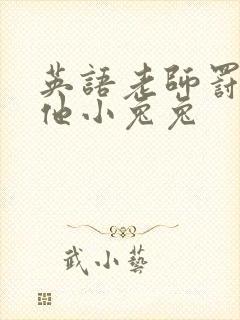 英語老師罰
他小兔兔
武小藝